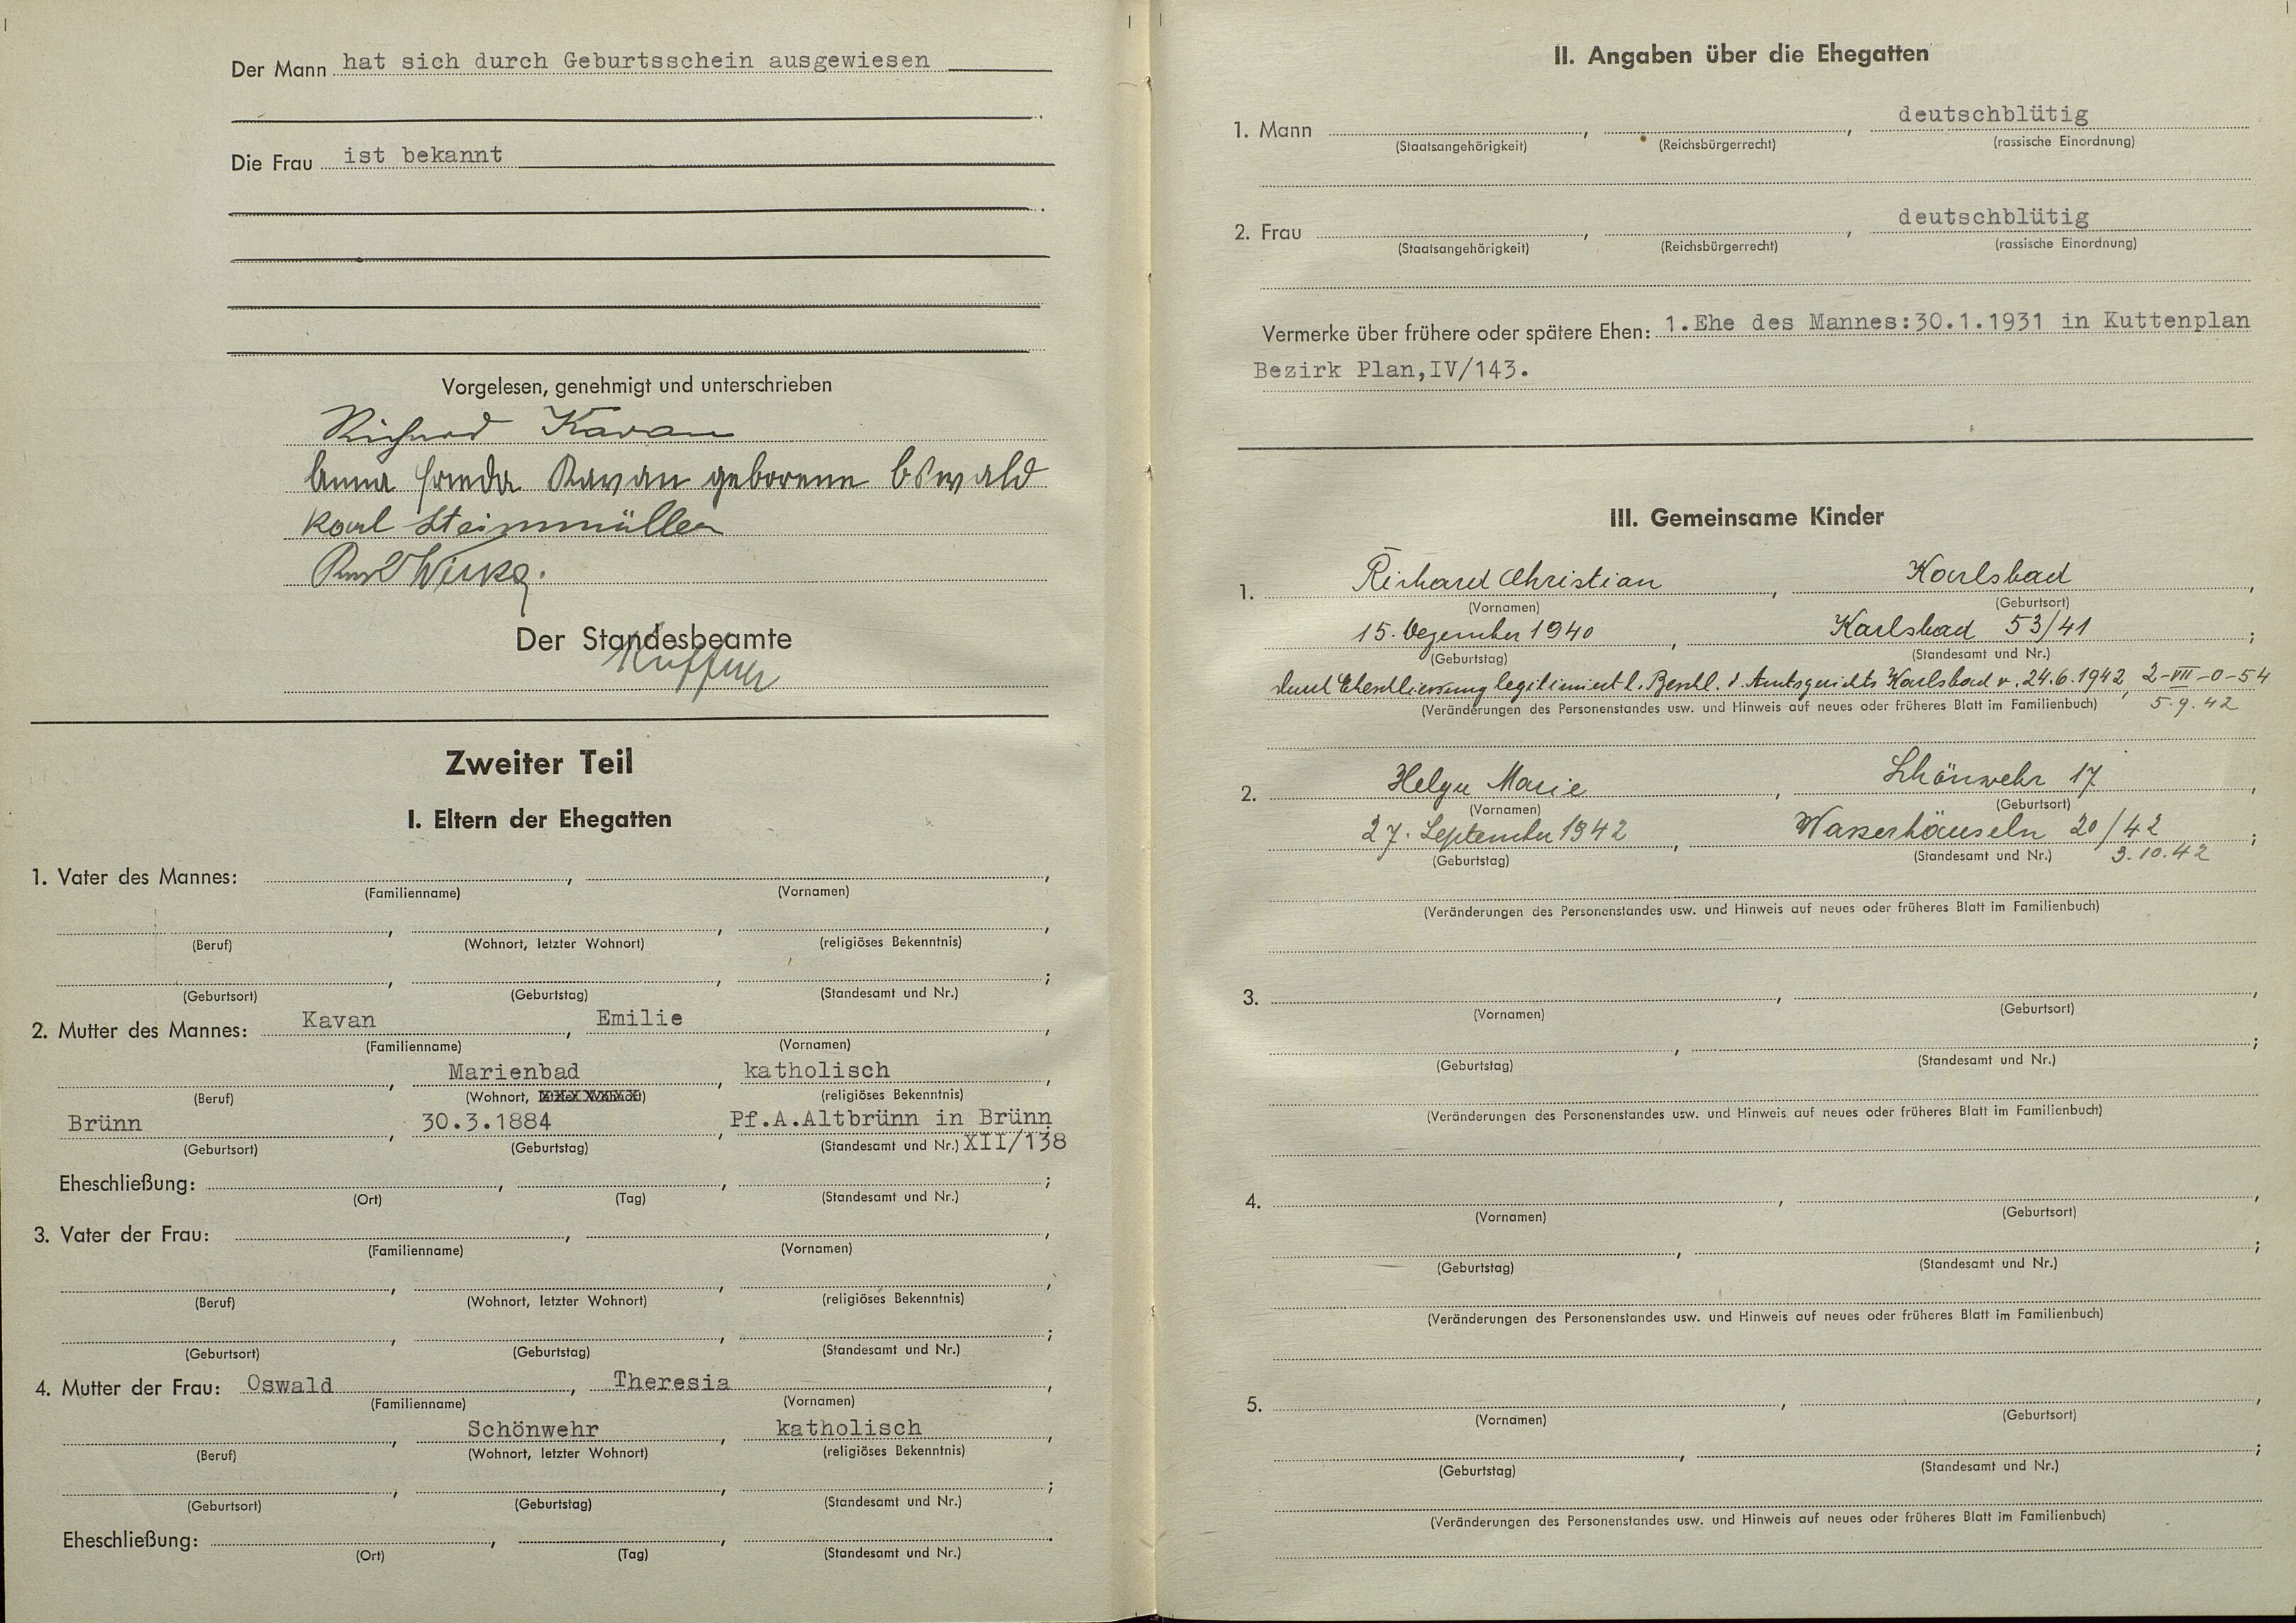 Der Mann hat sich durch Geburtsschein ausgewiesen
Die Frau ist bekannt
Vorgelesen, genehmigt und unterschrieben
Richard Kavan
Anna Frieda Kavan geborene Oswald
Karl Steinmüller
Der Standesbeamte
Zweiter Teil
I. Eltern der Ehegatten
1. Vater des Mannes: , ,
(Familienname) (Vornamen)
(Beruf) (Wohnort, letzter Wohnort) (religiöses Bekenntnis)
(Geburtsort) (Geburtstag) (Standesamt und Nr.)
2. Mutter des Mannes: Kavan , Emilie ,
(Familienname) (Vornamen)
, Marienbad , katholisch ,
(Beruf) (Wohnort, letzter Wohnort) (religiöses Bekenntnis)
Brünn , 30.3.1884 , Pf.A.Altbrünn in Brünn
(Geburtsort) (Geburtstag) (Standesamt und Nr.) XII/138
Eheschließung: , , ;
(Ort) (Tag) (Standesamt und Nr.)
3. Vater der Frau: , ,
(Familienname) (Vornamen)
(Beruf) (Wohnort, letzter Wohnort) (religiöses Bekenntnis)
(Geburtsort) (Geburtstag) (Standesamt und Nr.)
4. Mutter der Frau: Oswald , Theresia ,
(Familienname) (Vornamen)
, Schönwehr , katholisch ,
(Beruf) (Wohnort, letzter Wohnort) (religiöses Bekenntnis)
(Geburtsort) (Geburtstag) (Standesamt und Nr.)
Eheschließung: , , .
(Ort) (Tag) (Standesamt und Nr.)
II. Angaben über die Ehegatten
1. Mann , , deutschblütig
(Staatsangehörigkeit) (Reichsbürgerrecht) (rassische Einordnung)
2. Frau , , deutschblütig
(Staatsangehörigkeit) (Reichsbürgerrecht) (rassische Einordnung)
Vermerke über frühere oder spätere Ehen: 1.Ehe des Mannes:30.1.1931 in Kuttenplan
Bezirk Plan,IV/143.
III. Gemeinsame Kinder
1. Richard Christian , Karlsbad ,
(Vornamen) (Geburtsort)
15. Dezember 1940 , Karlsbad 53/41 ;
(Geburtstag) (Standesamt und Nr.)
durch Eheschliessung legitimiert l. Beschl. d. Amtsgerichts Karlsbad v. 24.6.1942, 2-VII-0-54
(Veränderungen des Personenstandes usw. und Hinweis auf neues oder früheres Blatt im Familienbuch) 5.9.42
2. Helga Marie , Schönwehr 17 ,
(Vornamen) (Geburtsort)
27. September 1942 , Wasserhäuseln 20/42 ;
(Geburtstag) (Standesamt und Nr.) 3.10.42
(Veränderungen des Personenstandes usw. und Hinweis auf neues oder früheres Blatt im Familienbuch)
3. , ,
(Vornamen) (Geburtsort)
(Geburtstag) (Standesamt und Nr.)
(Veränderungen des Personenstandes usw. und Hinweis auf neues oder früheres Blatt im Familienbuch)
4. , ,
(Vornamen) (Geburtsort)
(Geburtstag) (Standesamt und Nr.)
(Veränderungen des Personenstandes usw. und Hinweis auf neues oder früheres Blatt im Familienbuch)
5. , ,
(Vornamen) (Geburtsort)
(Geburtstag) (Standesamt und Nr.)
(Veränderungen des Personenstandes usw. und Hinweis auf neues oder früheres Blatt im Familienbuch)